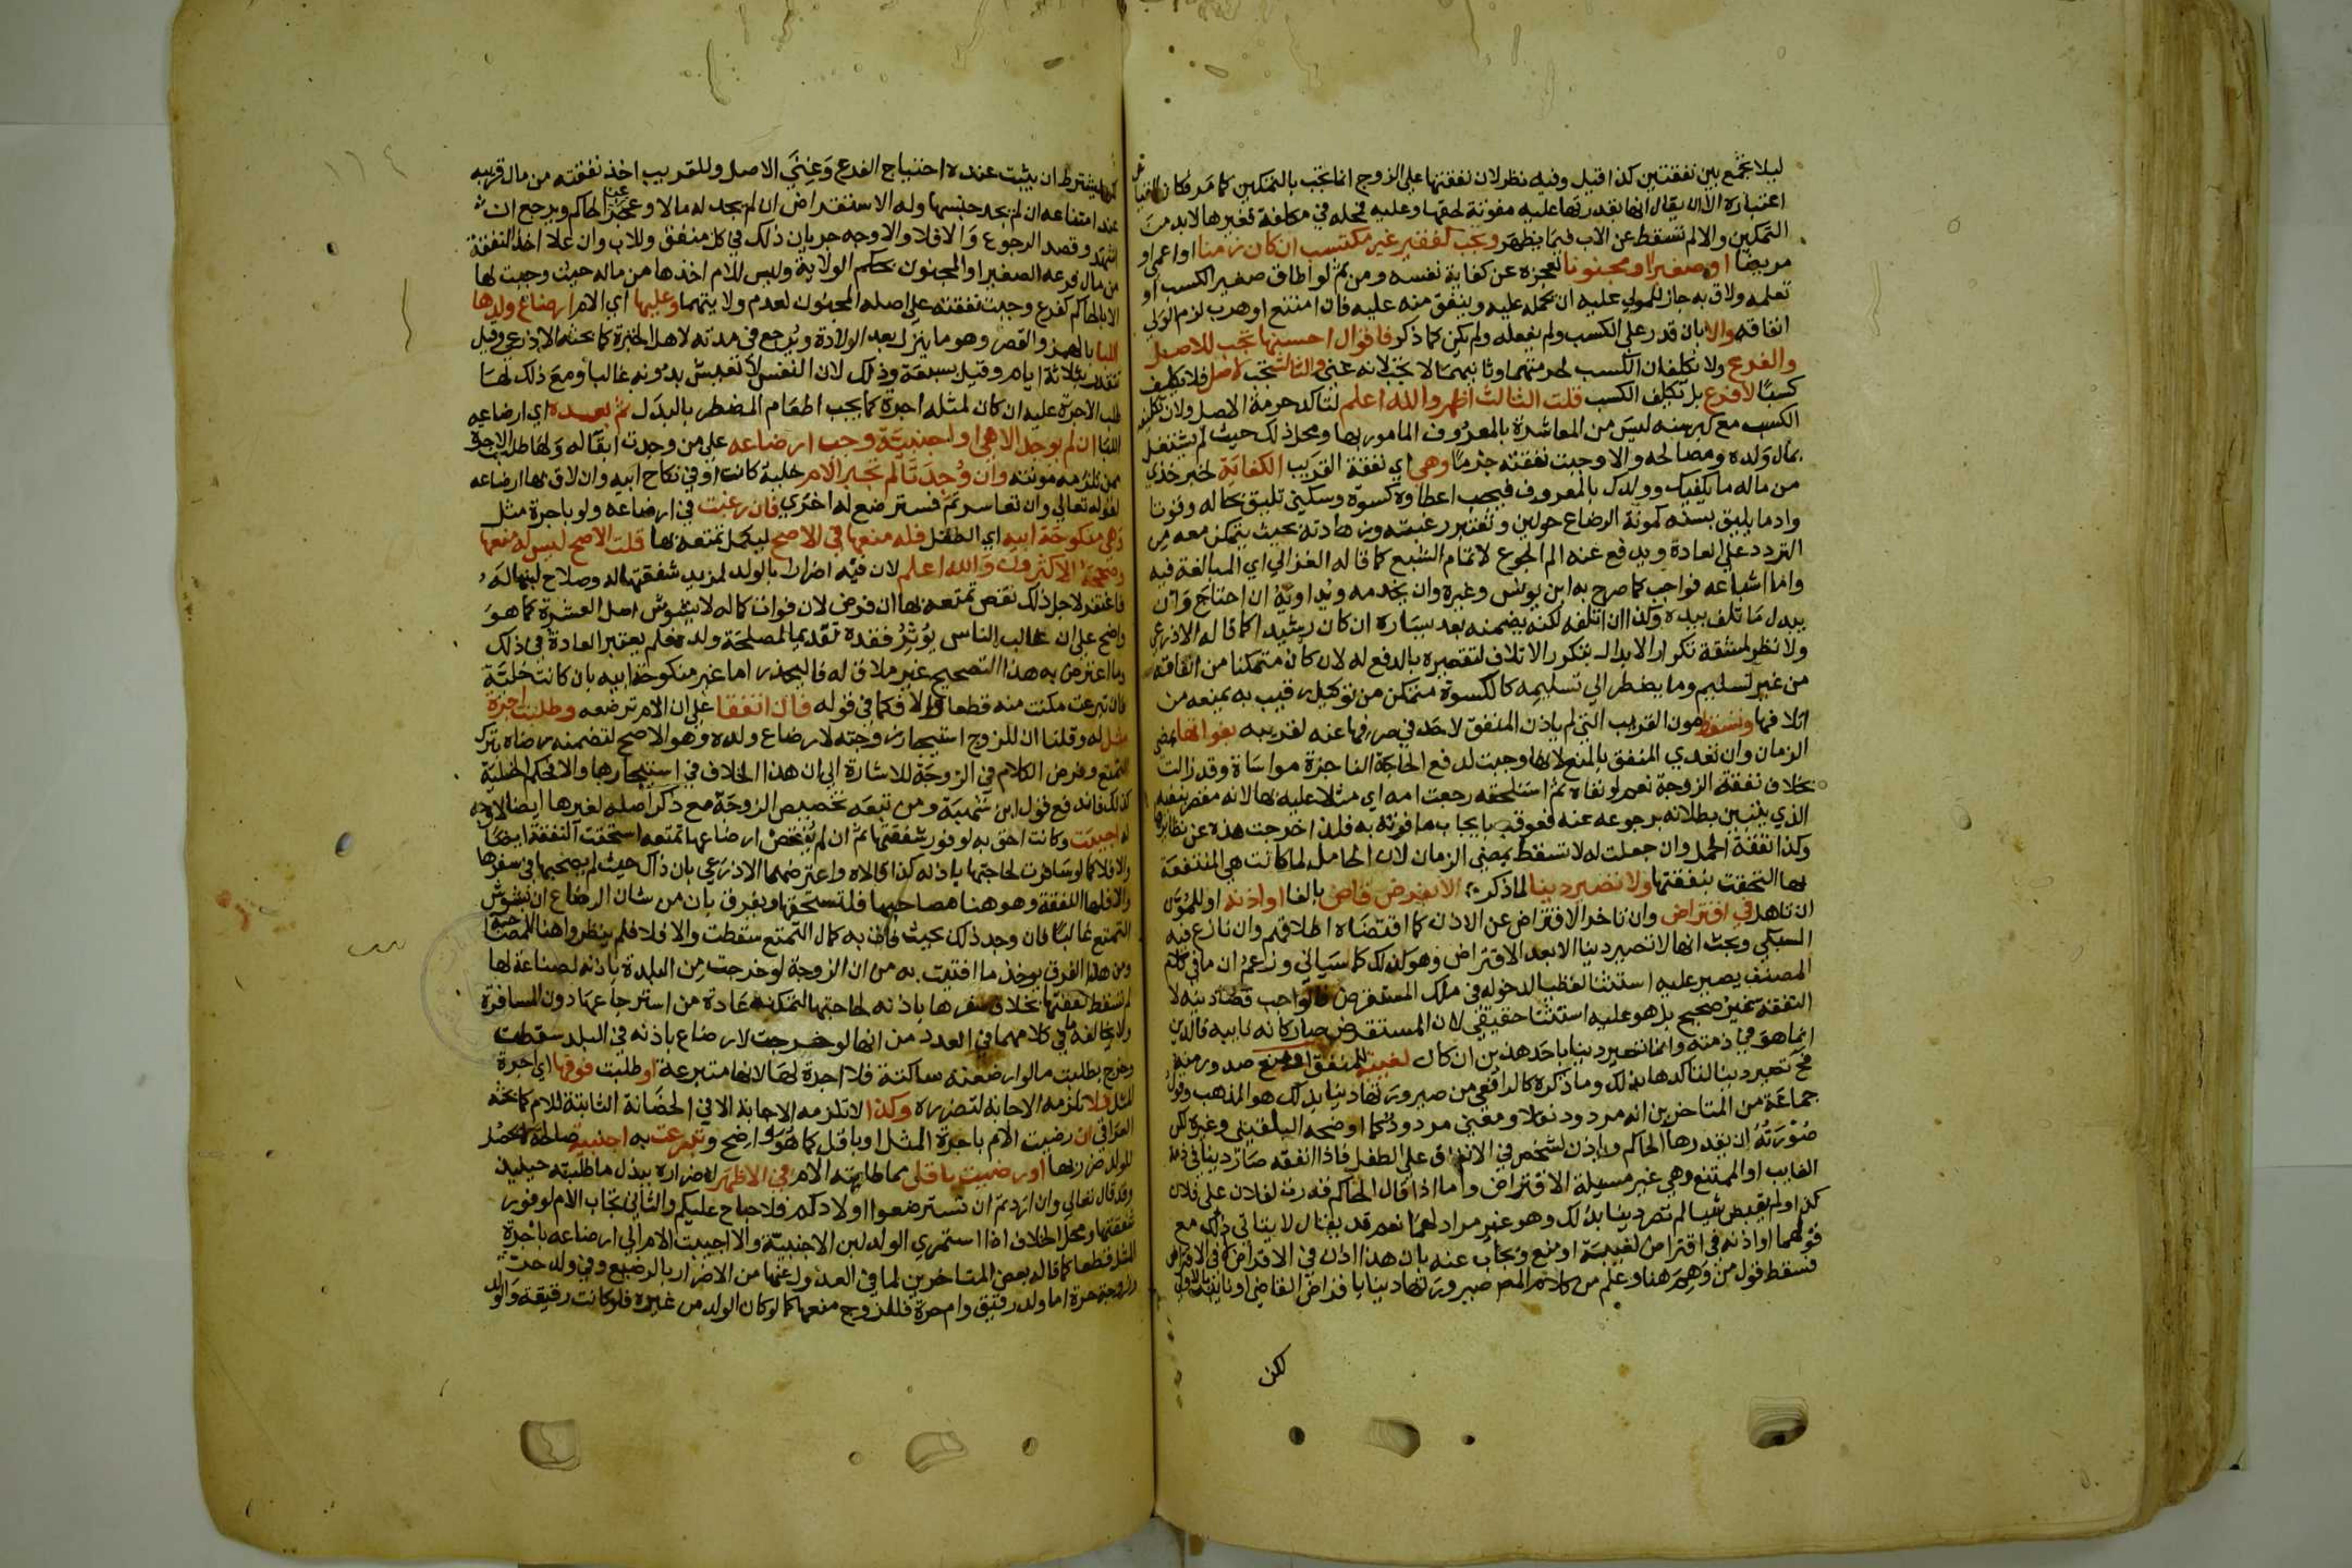 ليلا تجمع بين نفقتين كذا قيل وفيه نظر لان نفقتها على الزوج انما تجب بالتمكين كما مر فكان القياس
اعتباره الا ان يقال انها بقدرتها عليه مفوتة لحقها وعليه فمحله في مكلفة فغيرها لابد من
التمكين والا لم تسقط عن الاب فيما يظهر ويجب لفقير غير مكتسب ان كان زمنا او اعمى او
مريضا او صغيرا او مجنونا لعجزه عن كفاية نفسه ومن ثم لو اطاق صغير الكسب او
تعلمه ولاق به جاز للولي عليه ان يحمله عليه وينفق منه عليه فان امتنع او هرب لزم الولي
انفاقه والا بان قدر على الكسب ولم يفعله ولم يكن كما ذكر فاقوال احسنها تجب للاصل
والفرع ولا يكلفان الكسب لحرمتهما وثانيهما لا تجب لانه غني والثالث تجب لاصل فلا يكلف
كسبا لا فرع بل يكلف الكسب قلت الثالث اظهر والله اعلم لتاكد حرمة الاصل ولان تكليفه
الكسب مع كبر سنه ليس من المعاشرة بالمعروف المامور بها ومحل ذلك حيث لم يشتغل
بمال ولده ومصالحه والا وجبت نفقته جزما وهي اي نفقة القريب الكفاية لخبر خذي
من ماله ما يكفيك وولدك بالمعروف فيجب اعطاوه كسوة وسكنى تليق بحاله وقوتا
وادما يليق بسنه كمونة الرضاع حولين وتعتبر رغبته وزهادته بحيث يتمكن معه من
التردد على العادة ويدفع عنه الم الجوع لا تمام الشبع كما قاله الغزالي اي المبالغة فيه
واما اشباعه فواجب كما صرح به ابن يونس وغيره وان يخدمه ويداويه ان احتاج وان
يبدل ما تلف بيده وكذا ان اتلفه لكنه يضمنه بعد يساره ان كان رشيدا كما قاله الاذرعي
ولا نظر لمشقة تكرار الابدال بتكرر الاتلاف لتقصيره بالدفع له لان كان متمكنا من انفاقه
من غير تسليم وما يضطر الي تسليمه كالكسوة متمكن من توكيل رقيب به يمنعه من
اتلافها وتسقط مون القريب التي لم ياذن المنفق لاحد في صرفها عنه لقريبه بفواتها بمضي
الزمان وان تعدي المنفق بالمنع لانها وجبت لدفع الحاجة الناجزة مواساة وقد زالت
بخلاف نفقة الزوجة نعم لو نفاه ثم استلحقه رجعت امه اي مثلا عليه بها لانه مقصر بنفيه
الذي يتبين بطلانه برجوعه عنه فعوقب بايجاب ما فوته به فلذا خرجت هذه عن نظايرها
وكذا نفقة الحمل وان جعلت له لا تسقط بمضي الزمان لان الحامل لما كانت هي المنتفعة
بها التحقت بنفقتها ولا تصير دينا لما ذكر الا بفرض قاض بالفا او اذنه او للمون
ان تاهل في اقتراض وان تاخر الاقتراض عن الاذن كما اقتضاه اطلاقهم وان نازع فيه
السبكي وبحث انها لا تصير دينا الا بعد الاقتراض وهو كذلك كما سياتي وزعم ان ما في كلام
المصنف يصير عليه استثنا لفظيا لدخوله في ملك المستقرض فالواجب قضا دينه لا
النفقة غير صحيح بل هو عليه استثنا حقيقي لان المستقرض صار كانه نايبه فالدين
انما هو في ذمته وانما تصير دينا باحد هذين ان كان لغيبة للمنفق او منع صدر منه
فح تصير دينا لتاكدها بذلك وما ذكره كالرافعي من صيرورتها دينا بذلك هو المذهب وقول
جماعة من المتاخرين انه مردود نقلا ومعني مردود كما اوضحه البلقيني وغيره لكن
صورته ان يقدرها الحاكم وياذن لشخص في الانفاق على الطفل فاذا انفقه صار دينا في ذمة
الغايب او الممتنع وهي غير مسيلة الاقتراض واما اذا قال الحاكم قدرت لفلان على فلان
كذا ولم يقبض شيا لم تصر دينا بذلك وهو غير مراد لهما نعم قد يقال لا يتاتي ذلك مع
قولهما او اذنه في اقتراض لغيبة او منع ويجاب عنه بان هذا اذن في الاقراض لا في الاقتراض
فسقط قول من وهم هنا وعلم من كلام المص صيرورتها دينا باقتراض القاضي او نايبه بالاولى
لكن
لكن يشترط ان يثبت عنده احتياج الفرع وغني الاصل وللقريب اخذ نفقته من مال قريبه
عند امتناعه ان لم يجد جنسها وله الاستقراض ان لم يجد له مالا وعجز عن الحاكم ويرجع ان
اشهد وقصد الرجوع والا فلا والاوجه جريان ذلك في كل منفق وللاب وان علا اخذ النفقة
من مال فرعه الصغير او المجنون بحكم الولاية وليس للام اخذها من ماله حيث وجبت لها
الا بالحاكم كفرع وجبت نفقته على اصله المجنون لعدم ولايتهما وعليها اي الام ارضاع ولدها
اللبا بالهمز والقصر وهو ما ينزل بعد الولادة ويرجع في مدته لاهل الخبرة كما بحثه الاذرعي وقيل
تقدر بثلاثة ايام وقيل بسبعة وذلك لان النفس لا تعيش بدونه غالبا ومع ذلك لها
طلب الاجرة عليه ان كان لمثله اجرة كما يجب اطعام المضطر بالبدل ثم بعده اي ارضاعه
اللبا ان لم يوجد الا هي او اجنبية وجب ارضاعه على من وجدت ابقا له ولها طلب الاجرة
ممن تلزمه مونته وان وجدتا لم تجبر الام خلية كانت او في نكاح ابيه وان لاق بها ارضاعه
لقوله تعالي وان تعاسرتم فسترضع له اخري فان رغبت في ارضاعه ولو باجرة مثل
وهي منكوحة ابيه اي الطفل فله منعها في الاصح ليكمل تمتعه بها قلت الاصح ليس له منعها
وصححه الاكثرون والله اعلم لان فيه اضرارا بالولد لمزيد شفقتها له وصلاح لبنها له
فاغتفر لاجل ذلك نقص تمتعه بها ان فرض لان فوات كماله لا يشوش اصل العشرة كما هو
واضح على ان غالب الناس يؤثر فقده تقديما لمصلحة ولده فلم يعتبر العادة في ذلك
وما اعترض به هذا التصحيح غير ملاق له فاليحذر اما غير منكوحة ابيه بان كانت خلية
فان تبرعت مكنت منه قطعا والا فكما في قوله فان اتفقا على ان الام ترضعه وطلبت اجرة
مثل له وقلنا ان للزوج استيجار زوجته لارضاع ولده وهو الاصح لتضمنه رضاه بترك
التمتع وفرض الكلام في الزوجة للاشارة الي ان هذا الخلاف في استيجارها والا فحكم الخلية
كذلك فاندفع قول ابن شهبة ومن تبعه تخصيص الزوجة مع ذكر اصله لغيرها ايضا لا وجه
له اجيبت وكانت احق به لوفور شفقتها ثم ان لم ينقص ارضاعها تمتعه استحقت النفقة ايضا
والا فلا كما لو سافرت لحاجتها باذنه كذا قالاه واعترضهما الاذرعي بان ذاك حيث لم يصحبها في سفرها
والا فلها النفقة وهو هنا مصاحبها فلتستحقها ويفرق بان من شان الرضاع ان يشوش
التمتع غالبا فان وجد ذلك بحيث فات به كمال التمتع سقطت والا فلا فلم ينظروا هنا للمصاحبة
ومن هذا الفرق يوخذ ما افتيت به من ان الزوجة لو خرجت من البلدة باذنه لصناعة لها
لم تسقط نفقتها بخلاف سفرها باذنه لحاجتها لتمكنه عادة من استرجاعها دون المسافرة
ولا يخالفه ما في كلامهما في العدد من انها لو خرجت لارضاع باذنه في البلد سقطت
وخرج بطلبت ما لو ارضعته ساكتة فلا اجرة لها لانها متبرعة او طلبت فوقها اي اجرة
المثل فلا تلزمه الاجابة لتضرره وكذا لا تلزمه الاجابة الا في الحضانة الثابتة للام كما بحثه
العراقي ان رضيت الام باجرة المثل او باقل كما هو واضح وتبرعت به اجنبية صالحة لم يحصل
للولد ضرر بها او رضيت باقل مما طلبته الام في الاظهر لاضراره ببذل ما طلبته حينيذ
وقد قال تعالي وان اردتم ان تسترضعوا اولادكم فلا جناح عليكم والثاني تجاب الام لوفور
شفقتها ومحل الخلاف اذا استمري الولد لبن الاجنبية والا اجيبت الام الي ارضاعه باجرة
المثل قطعا كما قاله بعض المتاخرين لما في العدول عنها من الاضرار بالرضيع وفي ولد حر
وزوجة حرة اما ولد رقيق وام حرة فللزوج منعها كما لو كان الولد من غيره فلو كانت رقيقة والولد